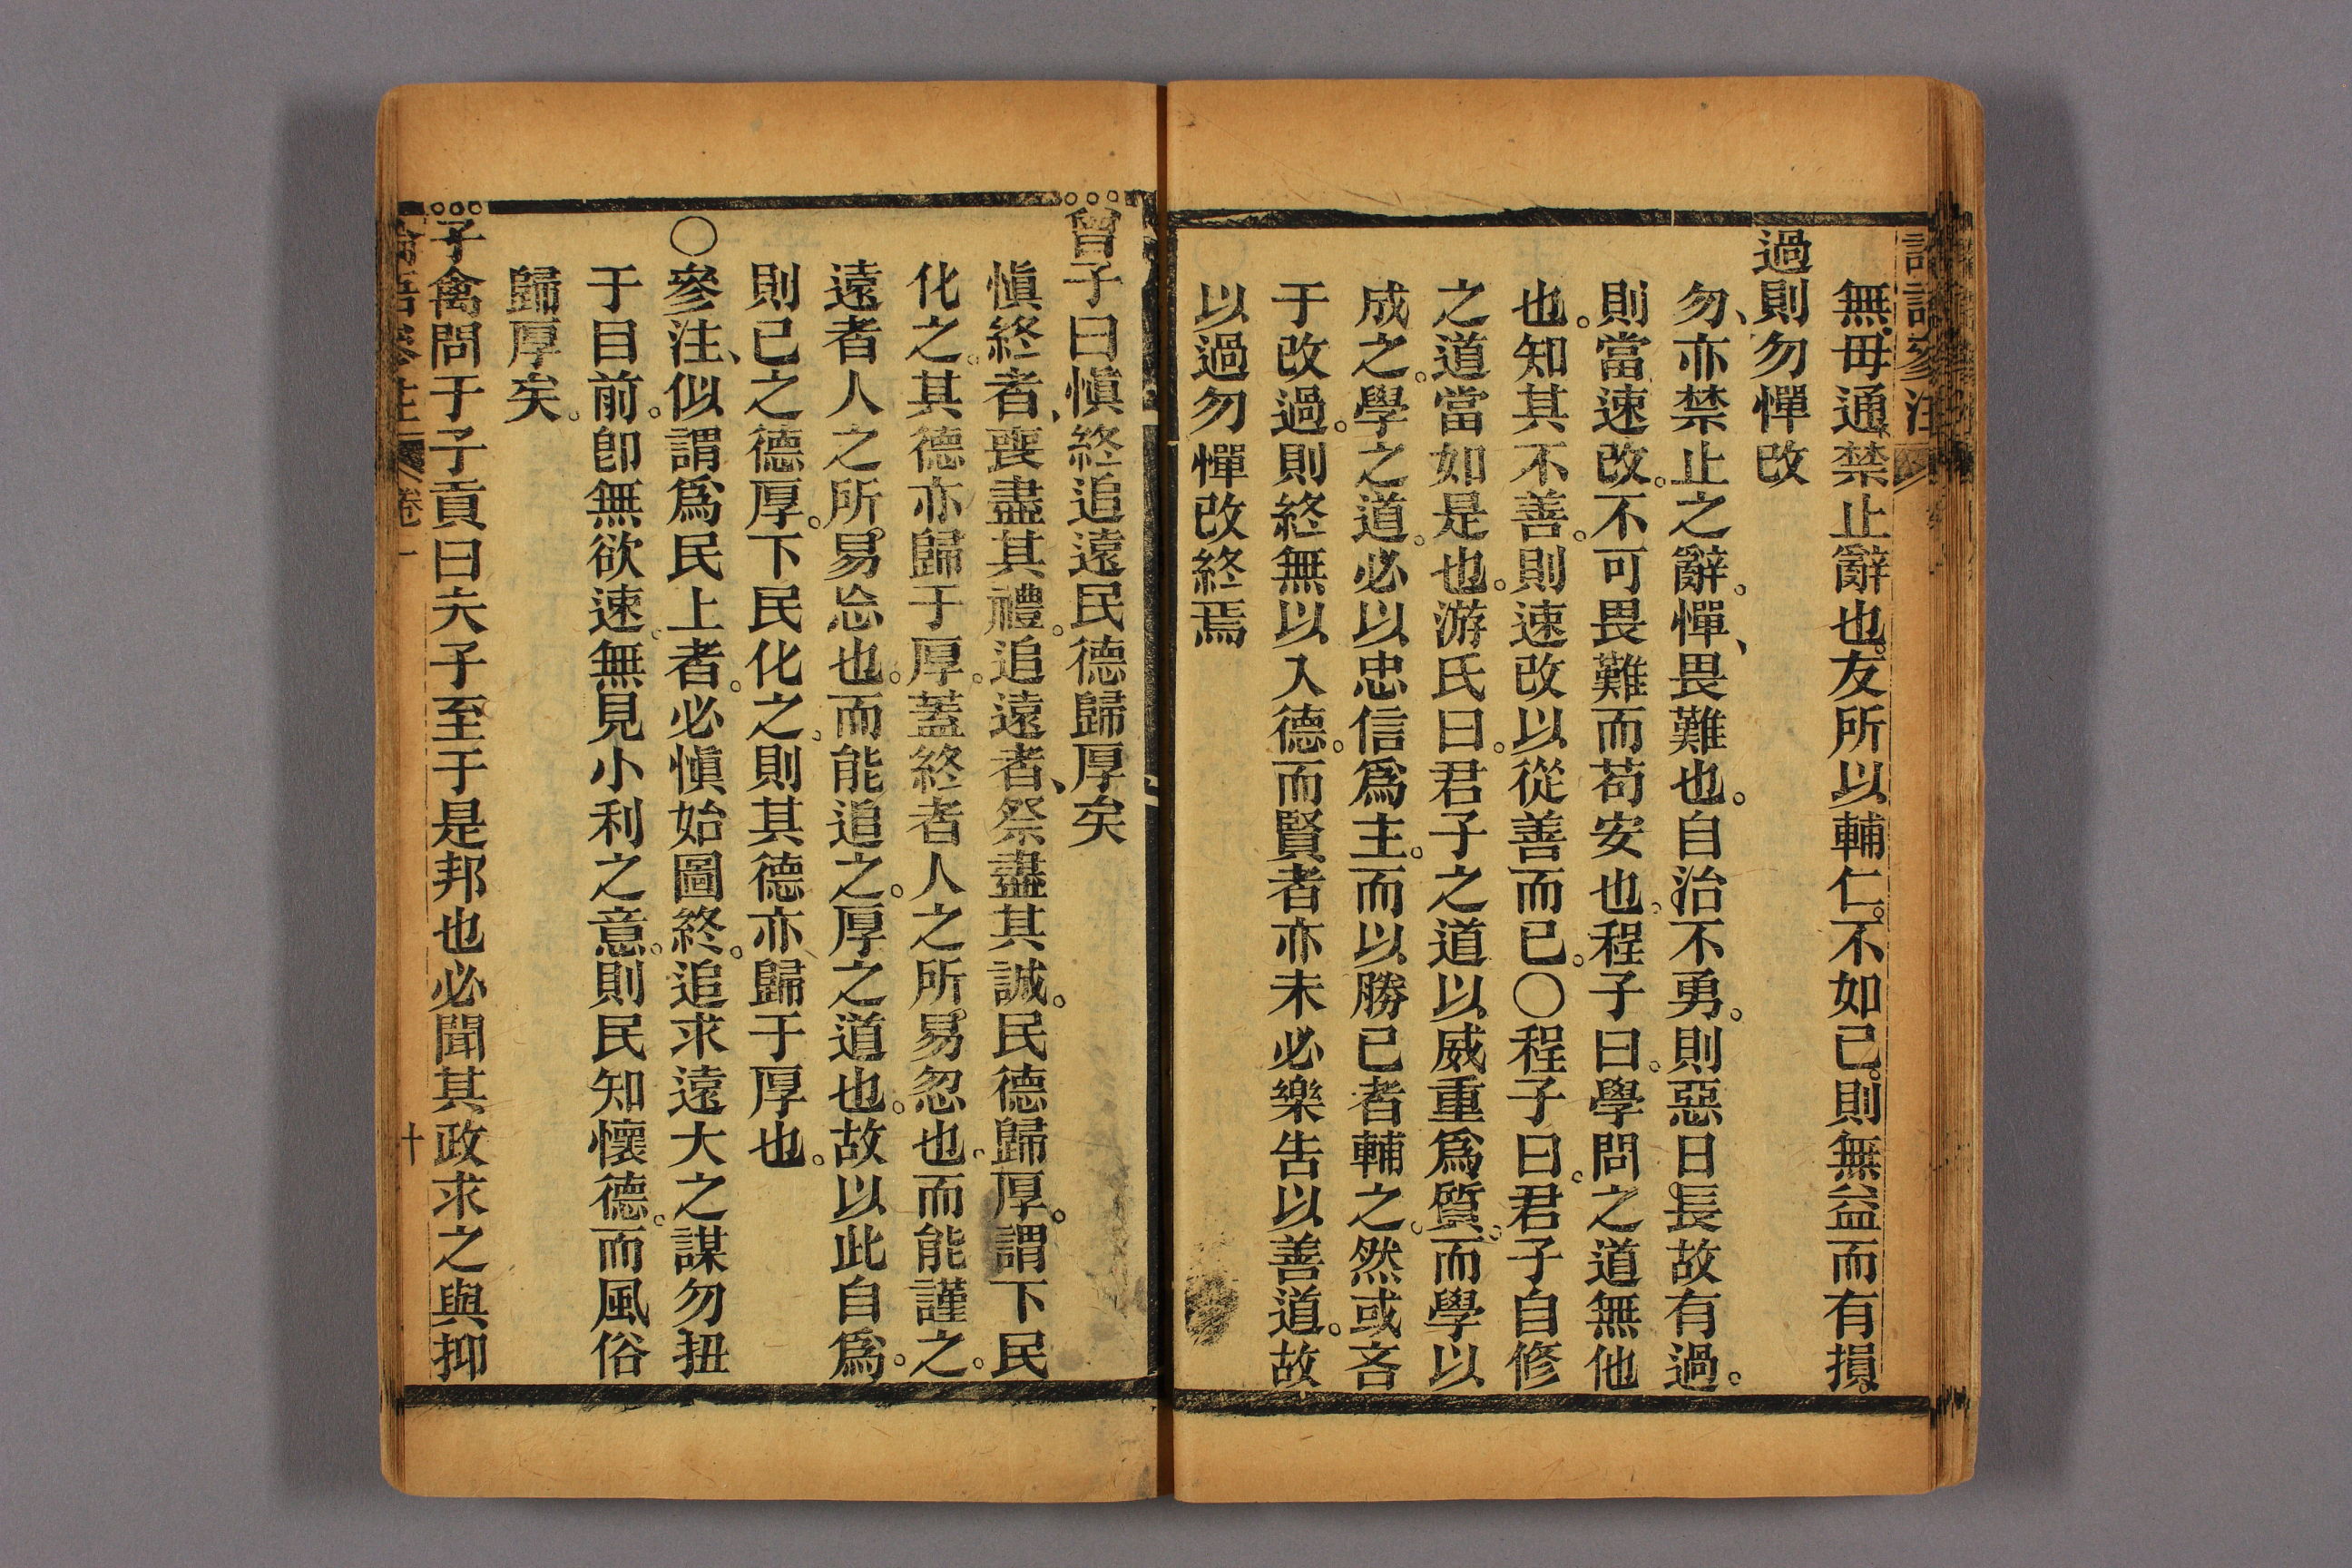 無、毋通、禁止辭也。友所以輔仁。不如己。則無益而有損。
過則勿憚改
勿、亦禁止之辭。憚、畏難也。自治不勇。則惡日長。故有過。
則當速改。不可畏難而苟安也。程子曰。學問之道無他
也。知其不善。則速改以從善而已。〇程子曰。君子自修
之道當如是也。游氏曰。君子之道以威重爲質。而學以
成之。學之道。必以忠信爲主。而以勝己者輔之。然或吝
于改過。則終無以入德。而賢者亦未必樂告以善道。故
以過勿憚改終焉
曾子曰愼終追遠民德歸厚矣
愼終者、喪盡其禮。追遠者、祭盡其誠。民德歸厚。謂下民
化之。其德亦歸于厚。蓋終者人之所易忽也。而能謹之。
遠者人之所易忘也。而能追之。厚之道也。故以此自爲。
則己之德厚。下民化之。則其德亦歸于厚也。
〇參注、似謂爲民上者。必愼始圖終。追求遠大之謀勿扭
于目前。卽無欲速。無見小利之意。則民知懷德。而風俗
歸厚矣。
子禽問于子貢曰夫子至于是邦也必聞其政求之與抑
論語參注 卷一 十